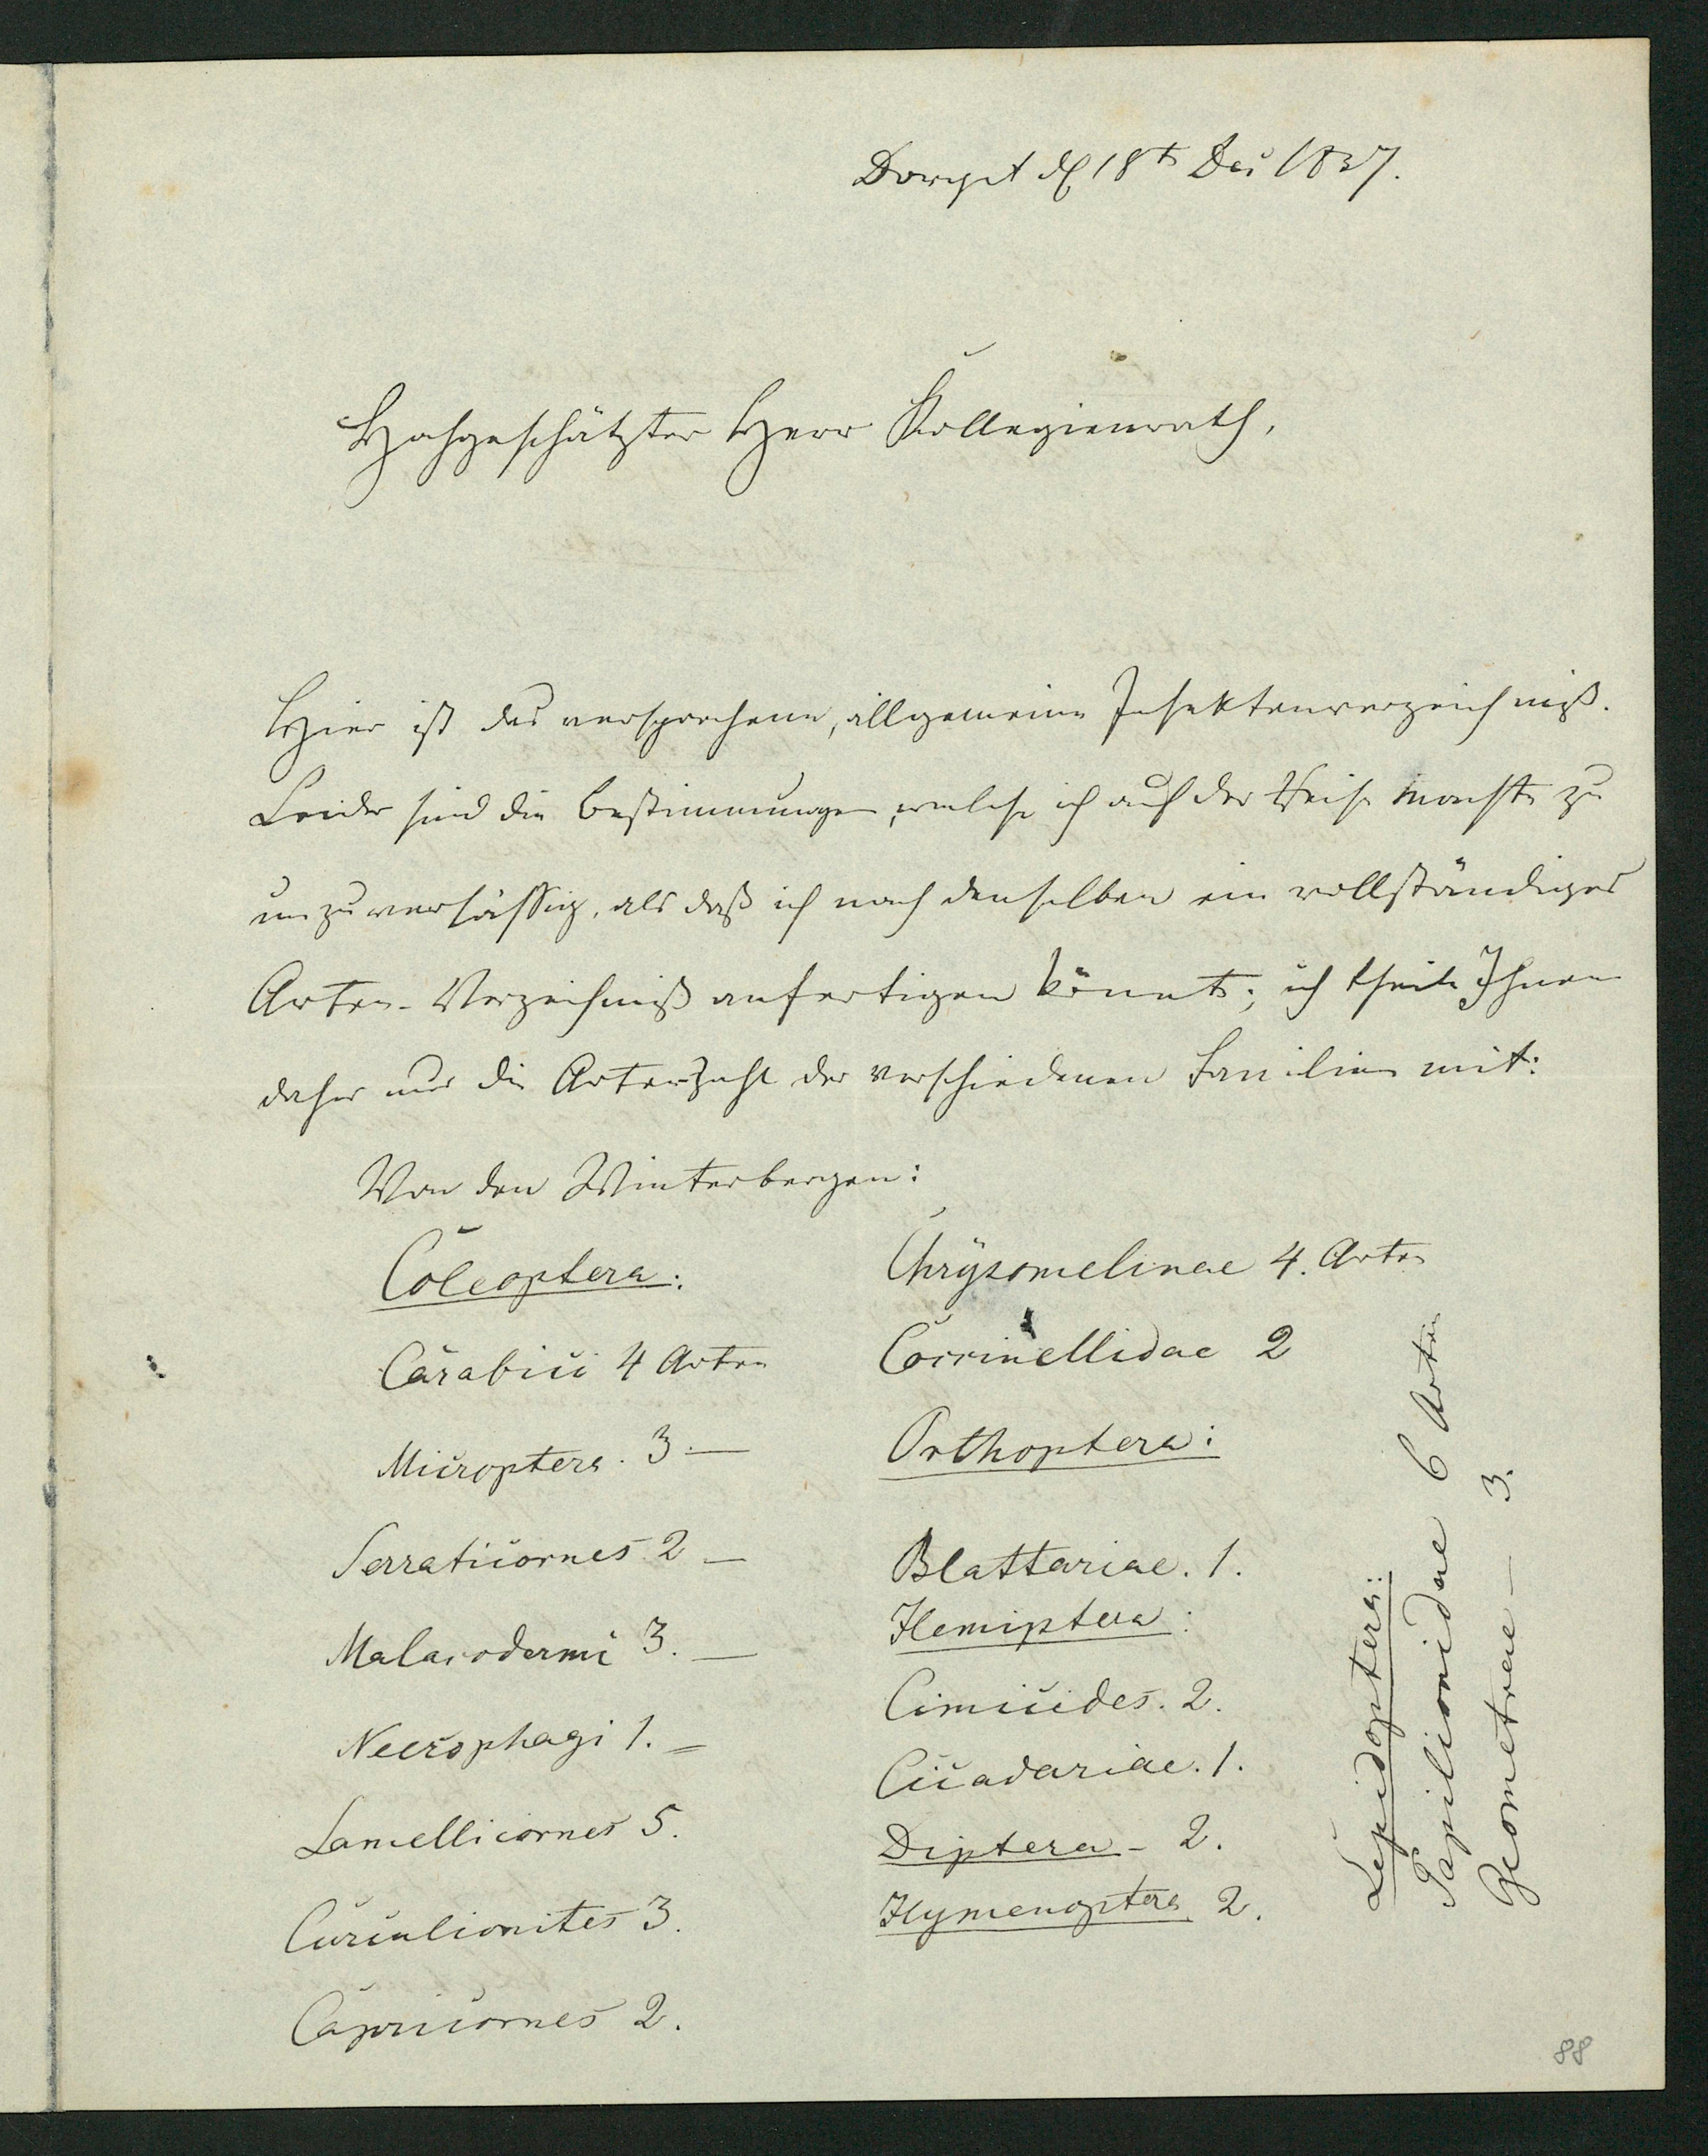 Dorpat d 18t Dec 1837.
Hochgeschätzter Herr Kollegienrath,
Hier ist das versprochene, allgemeine Insektenverzeichniß.
Leider sind die Bestimmungen, welche ich auf der Reise machte zu
unzuverlässig, als daß ich nach denselben ein vollständiges
Arten-Verzeichniß anfertigen könnte; ich theile Ihnen
daher nur die Artenzahl der verschiedenen Familien mit:
Von den Winterbergen:
Coleoptera:
Carabici 4 Arten
Microptera. 3 —
Serraticornes 2 —
Malacodermi 3. —
Necrophagi 1. —
Lamellicornes 5.
Curculionites 3.
Capricornes 2.
Chrysomelinae 4. Arten
Coccinellidae 2
Orthoptera:
Blattariae. 1.
Hemiptera:
Cimicides. 2.
Cicadariae. 1.
Diptera - 2.
Hymenoptera 2.
Lepidoptera:
Papilionidae 6 Arten
Geometrae — 3.
88